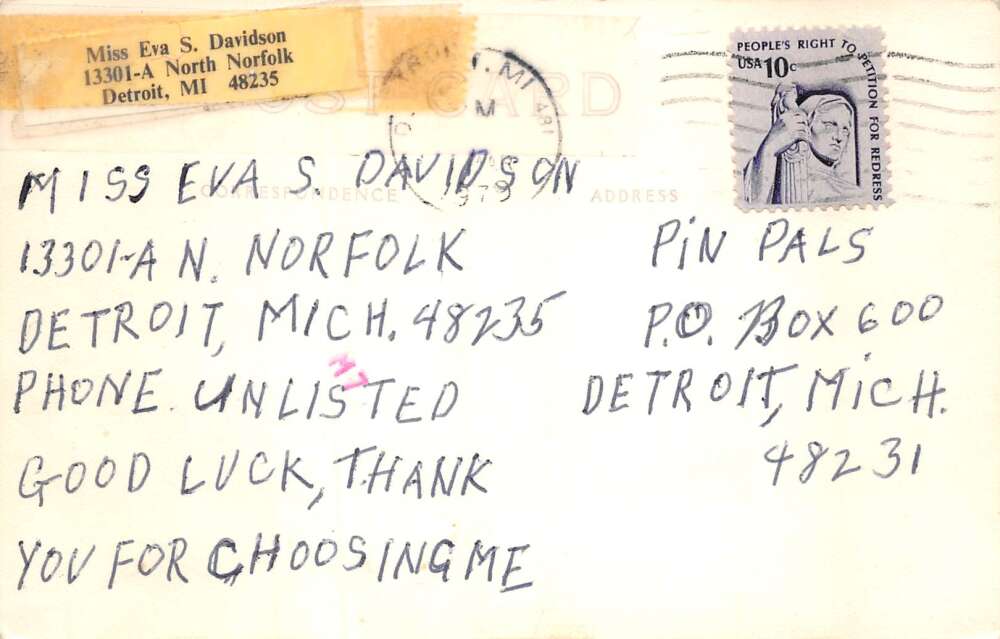 Miss Eva S. Davidson
13301-A North Norfolk
Detroit, MI 48235
POST CARD
MI 481
M
1979
PEOPLE'S RIGHT TO PETITION FOR REDRESS
USA 10c
CORRESPONDENCE
ADDRESS
MISS EVA S. DAVIDSON
13301-A N. NORFOLK
DETROIT, MICH. 48235
PHONE UNLISTED
MJ
GOOD LUCK, THANK
YOU FOR CHOOSING ME
PiN PALS
P.O. BOX 600
DETROIT, MiCH.
48231